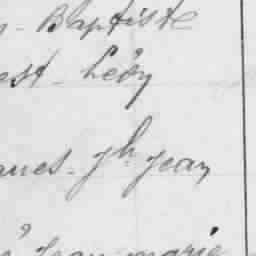 - Baptiste
est - Léon
ques - Jh Jean
Jean marie